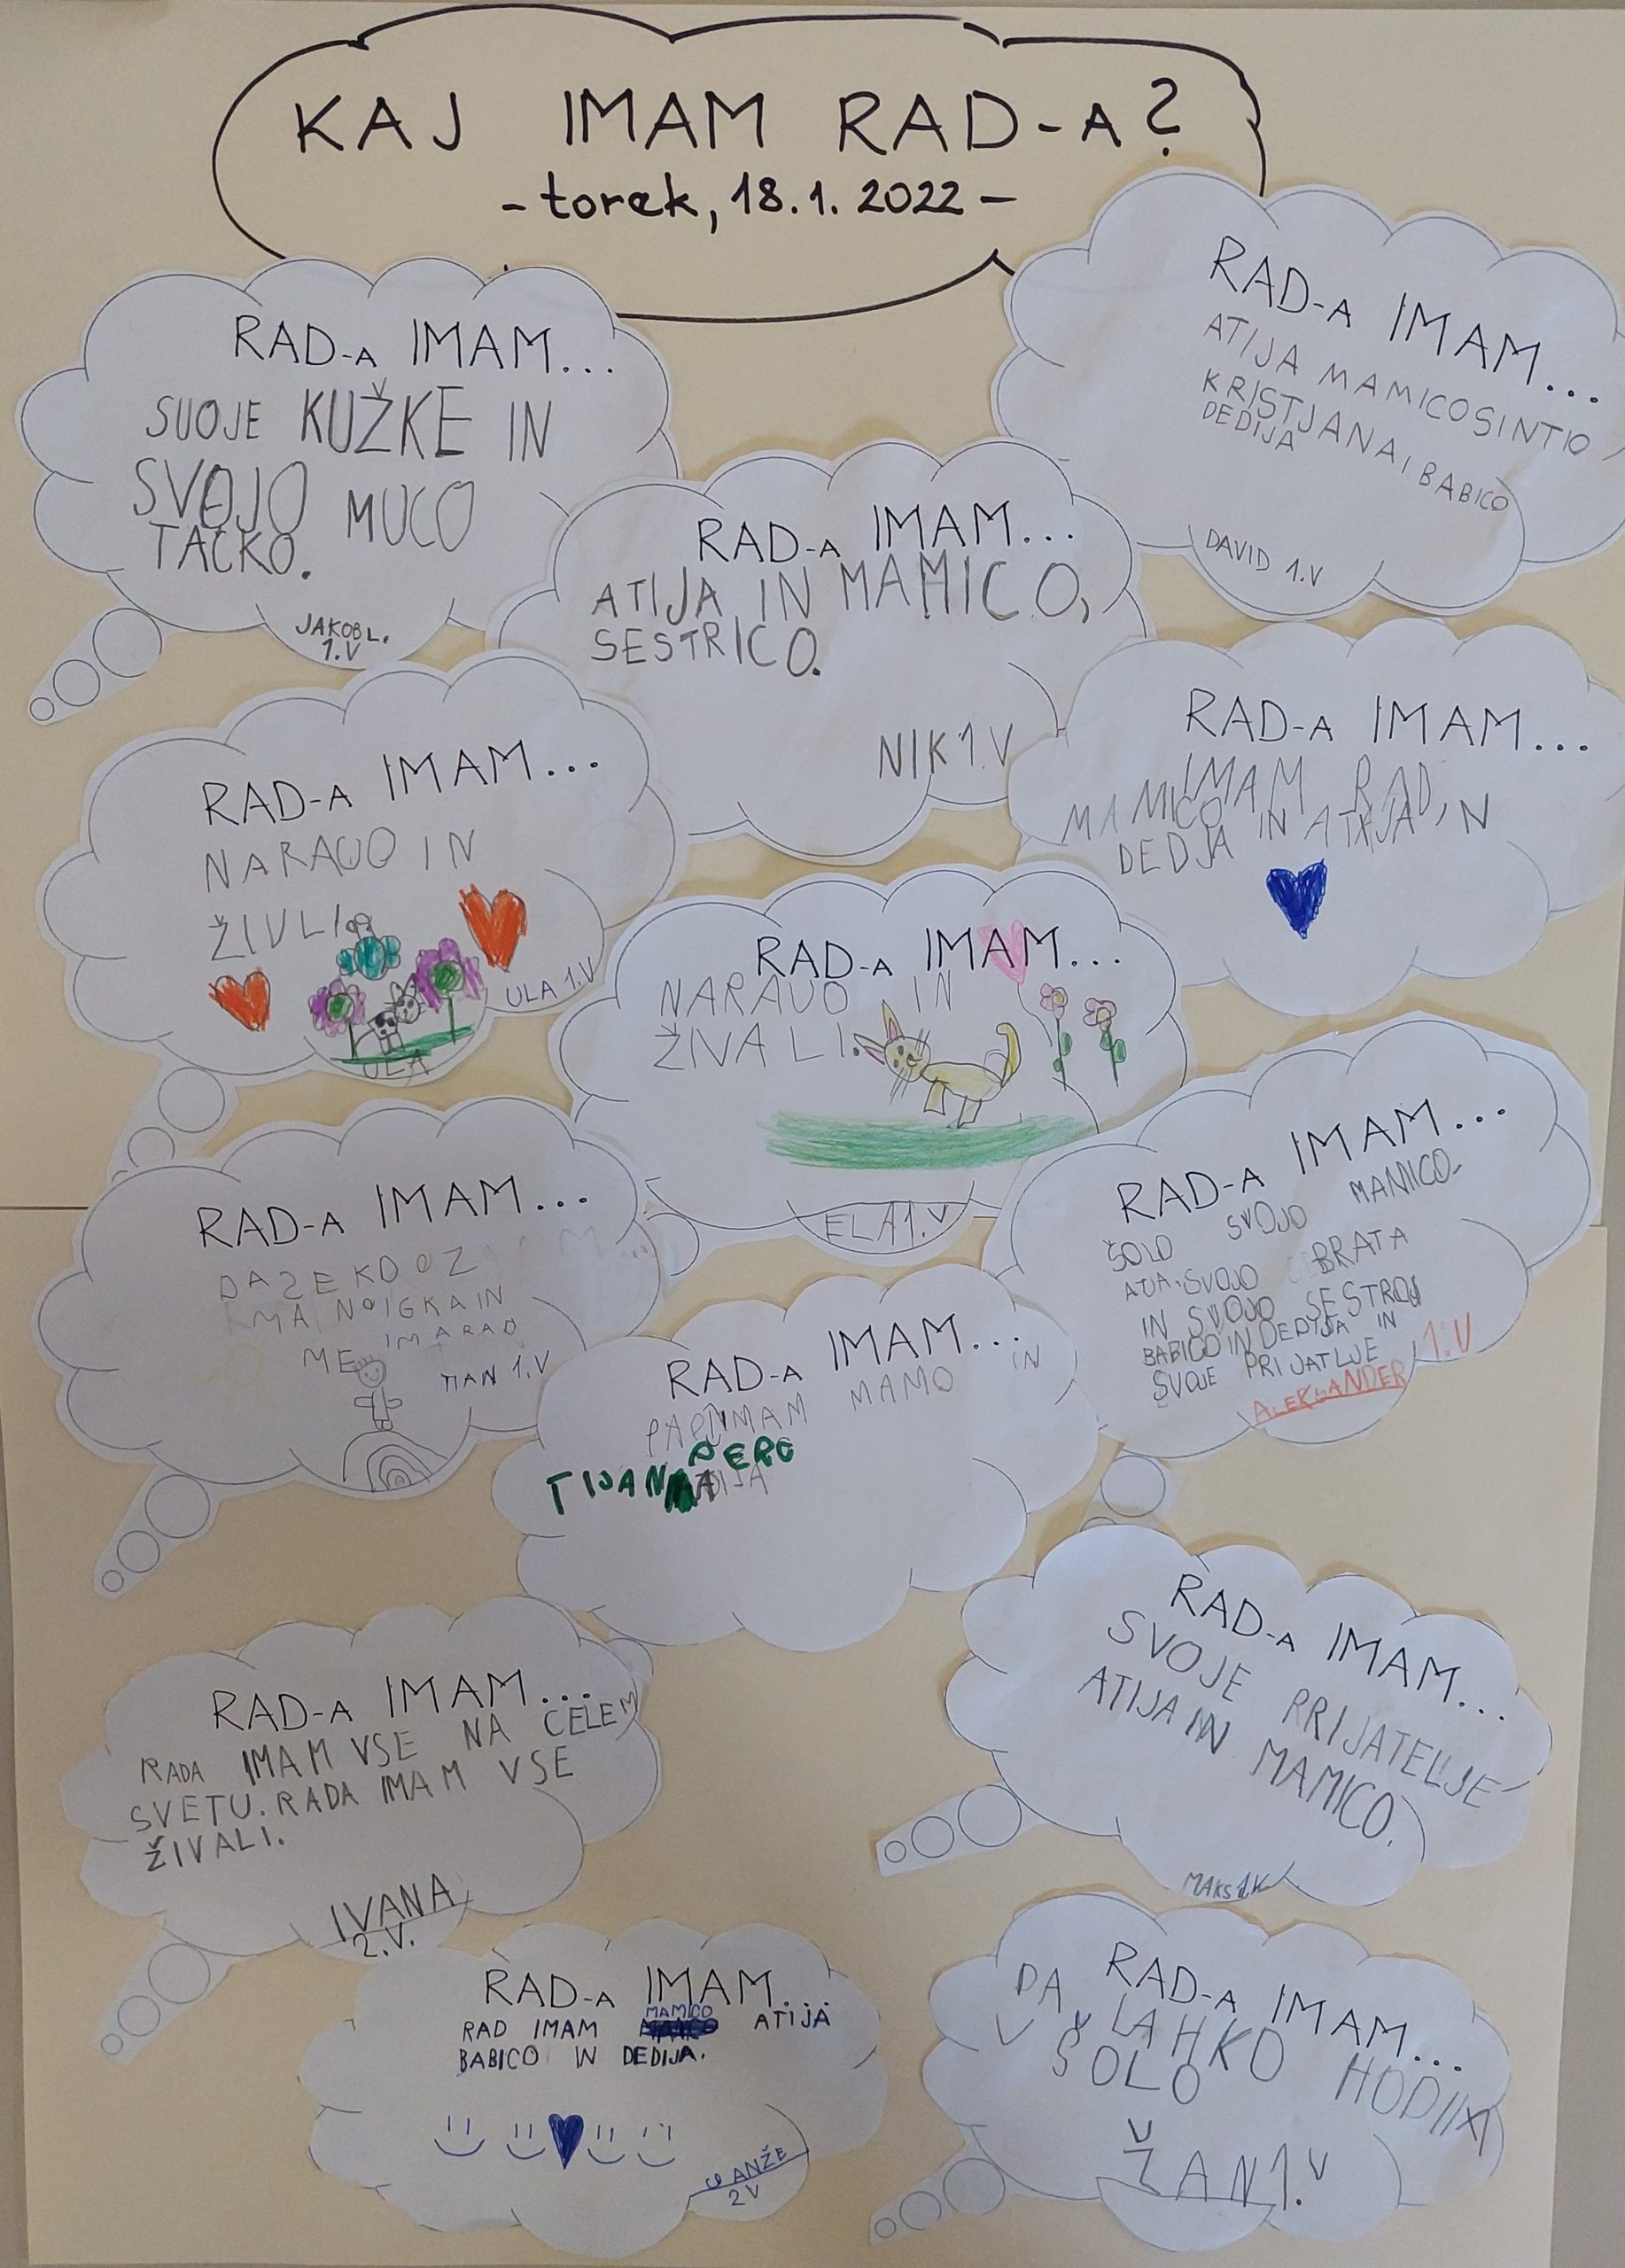 KAJ IMAM RAD-A?
- torek, 18.1. 2022 -
RAD-A IMAM...
SUOJE KUŽKE IN
SVOJO MUCO
TAČKO.
JAKOB L.
1.V
RAD-A IMAM...
ATIJA MAMICOSINTIO
KRISTJANA, BABICO
DEDIJA
DAVID 1.V
RAD-A IMAM...
ATIJA IN MAMICO,
SESTRICO.
NIK 1.V
RAD-A IMAM...
IMAM RAD,
MAMICO
DEDJA IN ATIJA
RAD-A IMAM...
NARAUO IN
ŽIVLI
ULA 1.V
ULA
RAD-A IMAM...
NARAUO IN
ŽIVALI.
ELA 1.V
RAD-A IMAM...
ŠOLO SVOJO MAMICO
ATIJA. SVOJO BRATA
IN SVOJO SESTROJ
BABICO IN DEDIJA IN
SVOJE PRIJATLJE
ALEKSANDER 1.V
RAD-A IMAM...
IMARAD
ME
TIAN 1.V
RAD-A IMAM...
IMAM MAMO IN
TIJANA
RAD-A IMAM...
RADA IMAM VSE NA CELEM
SVETU. RADA IMAM VSE
ŽIVALI.
IVANA
2.V.
RAD-A IMAM...
SVOJE PRIJATELJE
ATIJA IN MAMICO.
MAKS 1.V
RAD-A IMAM...
MAMICO
RAD IMAM ATIJA
BABICO IN DEDIJA.
ANŽE
2V
RAD-A IMAM...
DA LAHKO HODIM
V ŠOLO
ŽAN 1.V